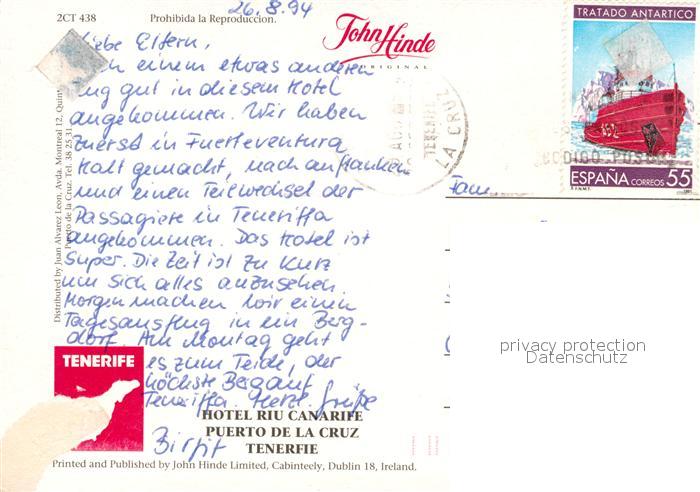 2CT 438
Prohibida la Reproduccion.
26.8.94
John Hinde
ORIGINAL
TRATADO ANTARTICO
ESPAÑA CORREOS 55
F.N.M.T.
TENERIFE
LA CRUZ
CODIGO POSTAL
Liebe Eltern,
einem etwas anderen
gut in diesem Hotel
angekommen. Wir haben
zuerst in Fuerteventura
halt gemacht, nach auftanken
und einen Teilwechsel der
Passagiere in Teneriffa
angekommen. Das Hotel ist
super. Die Zeit ist zu kurz
um sich alles anzusehen.
Morgen machen wir einen
Tagesausflug in ein Berg-
dorf. Am Montag geht
es zum Teide, der
höchste Berg auf
Teneriffa. Herzl. Grüße
Birgit
Fam
Distributed by Juan Alvarez Leon, Avda. Montreal 12,
Puerto de la Cruz. Tel. 38 25 31
TENERIFE
HOTEL RIU CANARIFE
PUERTO DE LA CRUZ
TENERFIE
Printed and Published by John Hinde Limited, Cabinteely, Dublin 18, Ireland.
privacy protection
Datenschutz